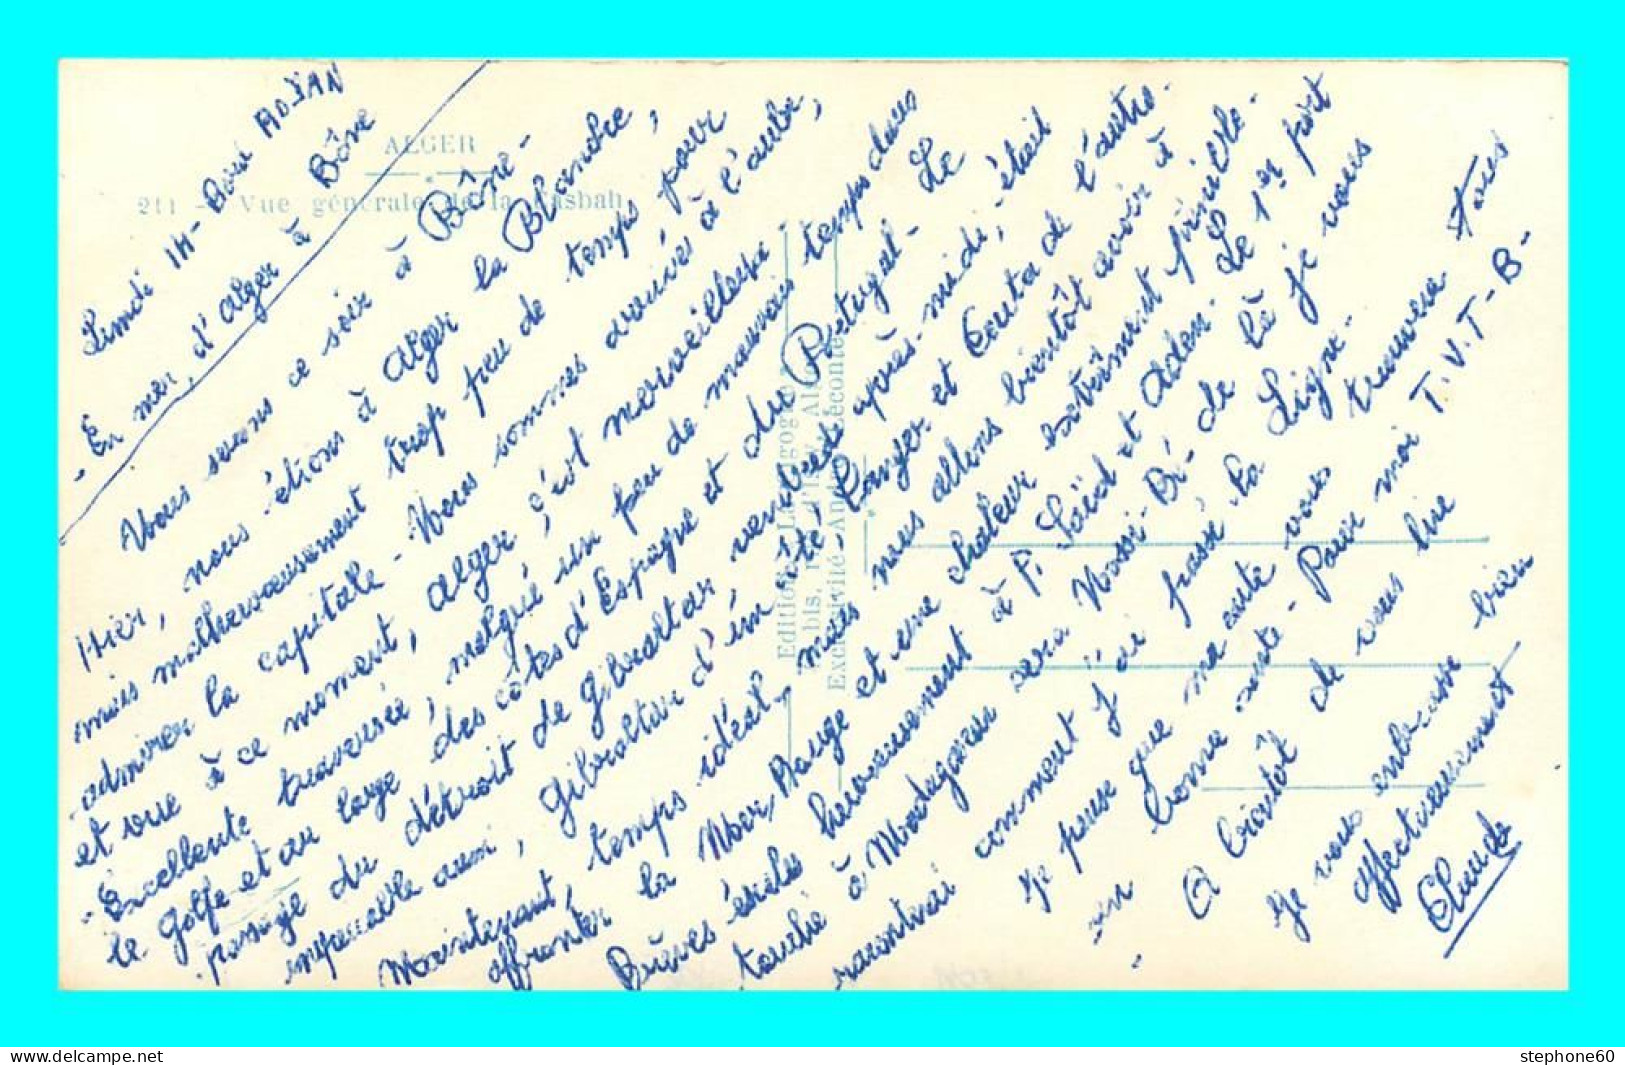 Lundi 14 - Bord ADJAN
- En mer, d'Alger à Bône
Nous serons ce soir à Bône -
Hier, nous étions à Alger la Blanche,
mais malheureusement trop peu de temps pour
admirer la capitale - Nous sommes arrivés à l'aube,
et vue à ce moment, Alger, c'est merveilleux -
- Excellente traversée, malgré un peu de mauvais temps dans
le Golfe et au large des côtes d'Espagne et du Portugal - Le
passage du détroit de Gibraltar, vendredi après-midi, était
impeccable aussi, Gibraltar d'un côté, Tanger et Ceuta de l'autre -
Maintenant, temps idéal, mais nous allons bientôt avoir à
affronter la Mer Rouge et une chaleur extrêmement pénible -
Brèves escales heureusement à P. Saïd et Aden - Le 1er port
touché à Madagascar sera Nossi-Bé - de là je vous
raconterai comment j'ai passé la Ligne -
Je pense que ma carte vous trouvera tous
en bonne santé - Pour moi T.V.T-B-
- A bientôt de vous lire
Je vous embrasse bien
affectueusement
Claude
ALGER
211 - Vue générale de la Casbah
Editions La Cigogne
bls, r. d'Isly, Alger
Exclusivité André Leconte
stephone60